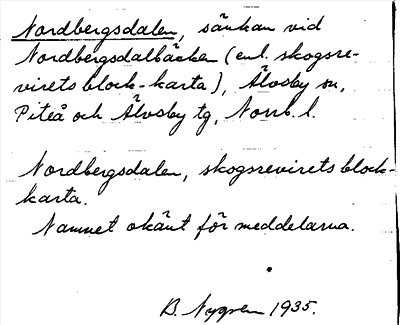 Nordbergsdalen, sänkan vid
Nordbergsdalbäcken (enl. skogsre-
virets block-karta), Älvsby sn,
Piteå och Älvsby tg, Norrb. l.
Nordbergsdalen, skogsrevirets block-
karta.
Namnet okänt för meddelarna.
B. Nygren 1935.